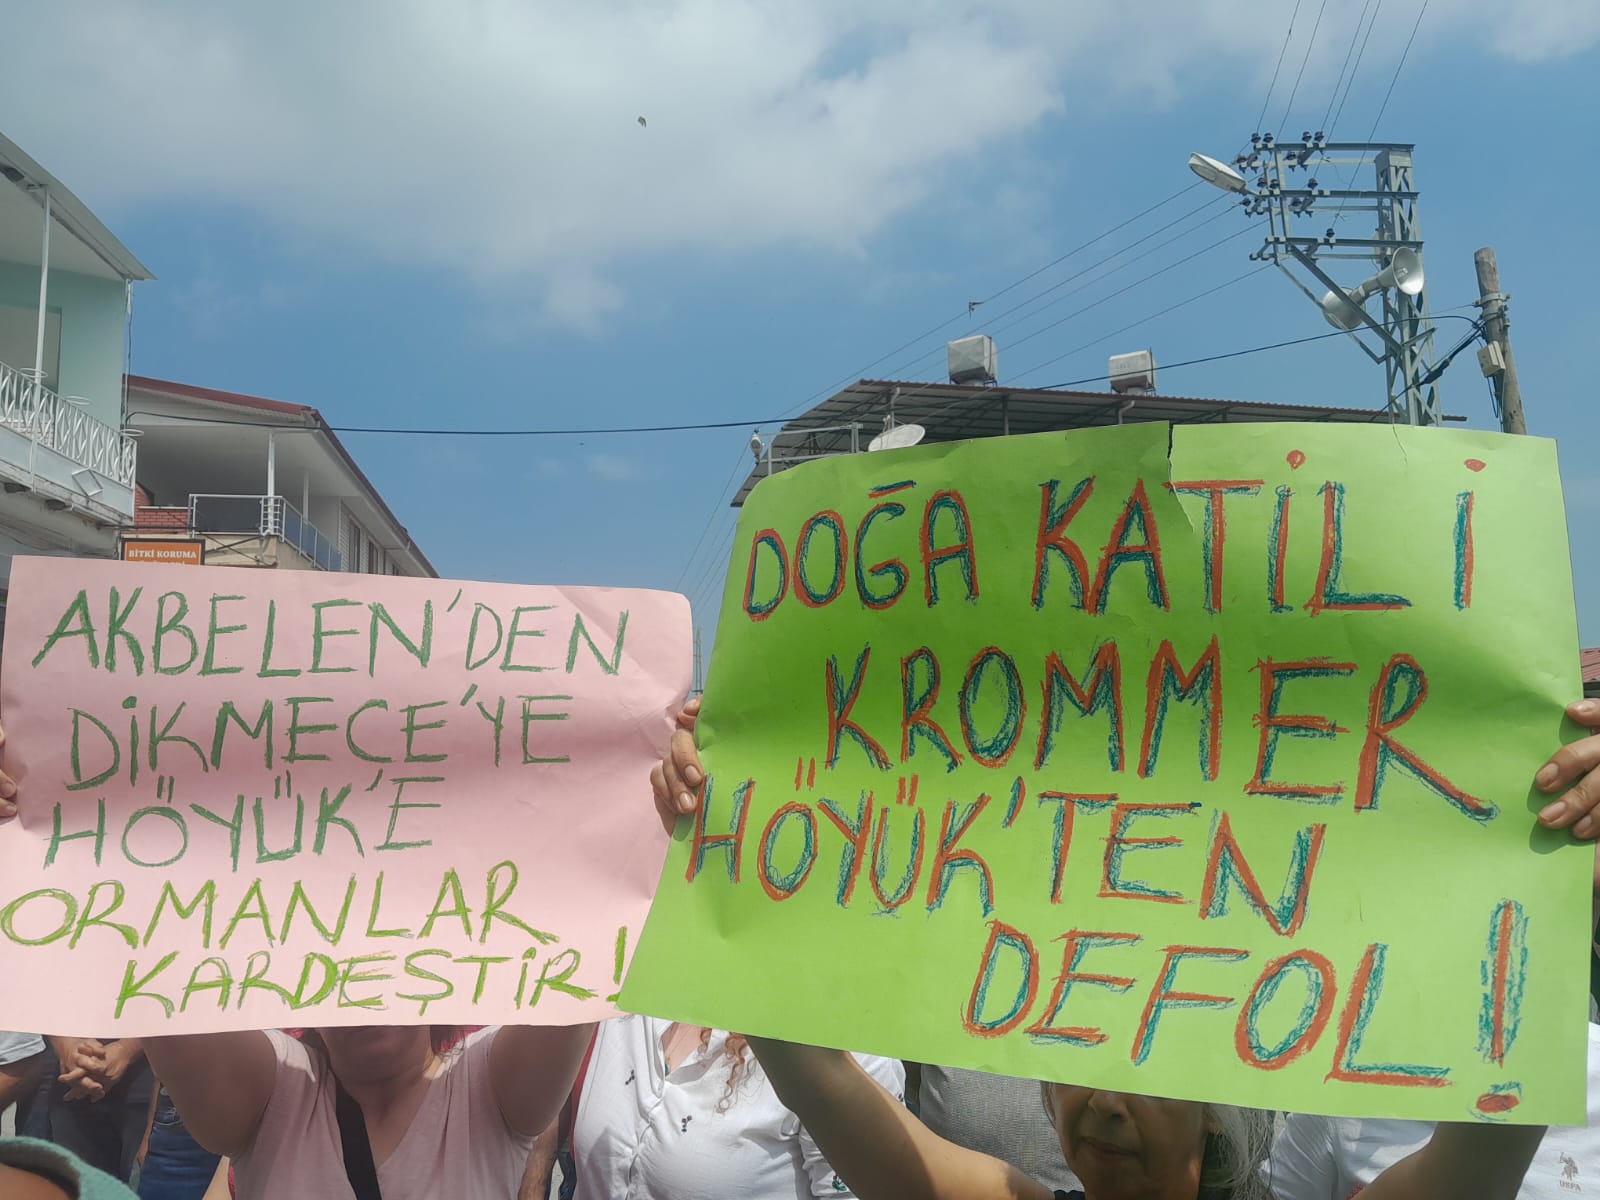 BİTKİ KORUMA
AKBELEN'DEN
DİKMECE'YE
HÖYÜK'E
ORMANLAR
KARDEŞTİR!
DOĞA KATİLİ
KROMMER
HÖYÜK'TEN
DEFOL!
USPA